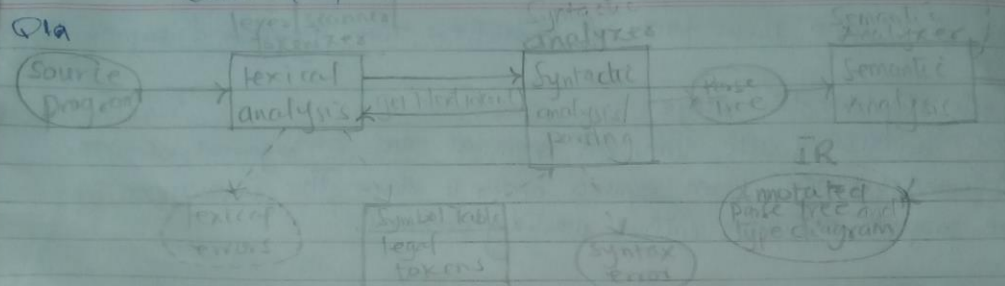 Q1a
lexer/scanner/
tokenizer
Syntactic
analyzer
Semantic
analyzer
Source
program
lexical
analysis
getNextToken
Syntactic
analysis/
parsing
Parse
tree
Semantic
analysis
IR
Annotated
parse tree and
type diagram
lexical
errors
Symbol Table
legal
tokens
Syntax
error